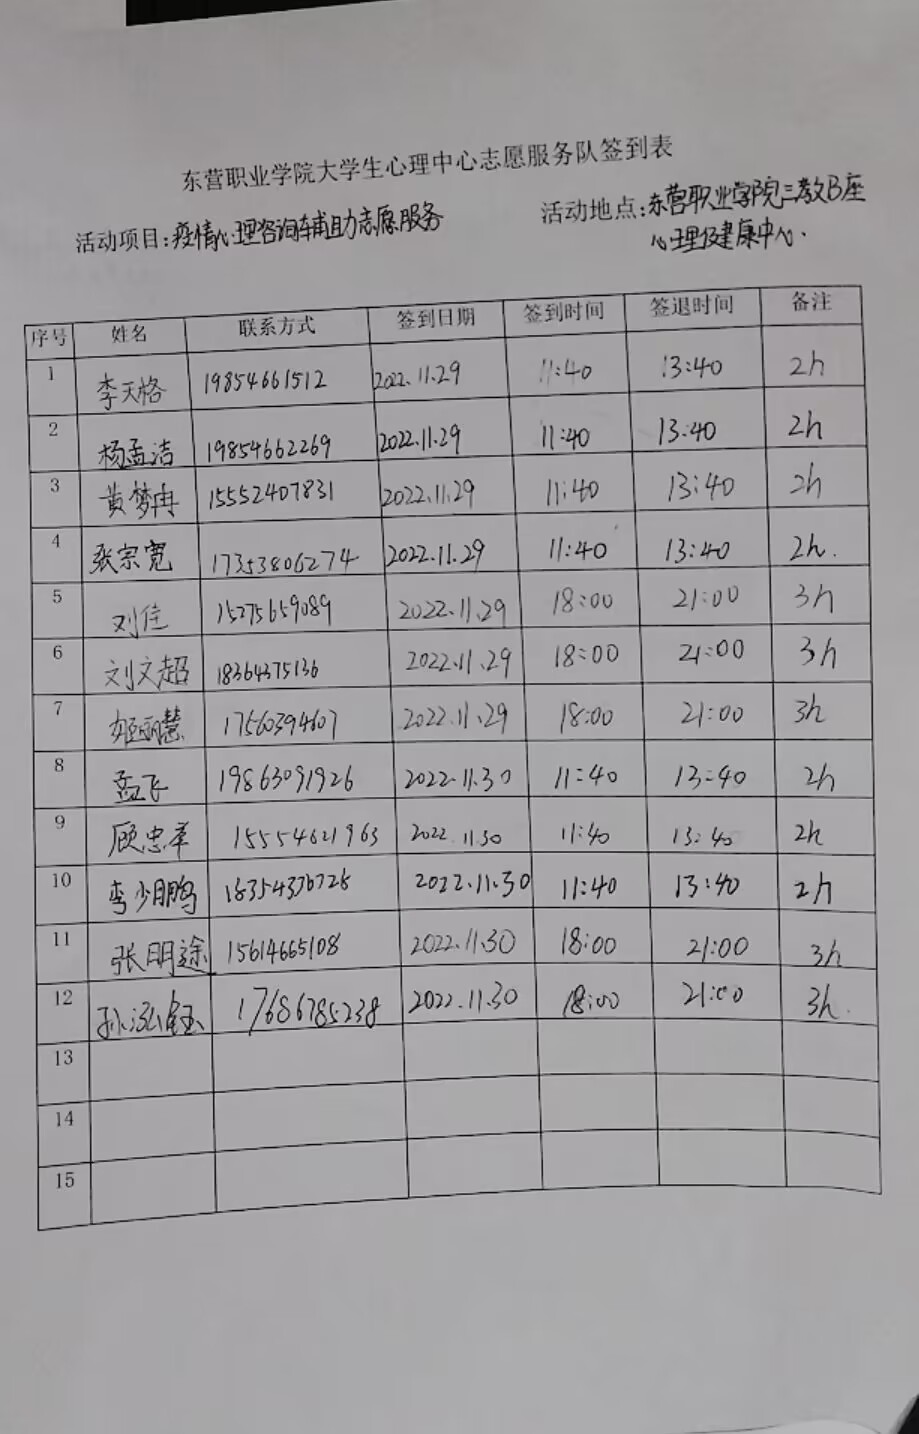 东营职业学院大学生心理中心志愿服务队签到表
活动项目:疫情心理咨询辅助志愿服务 活动地点:东营职业学院三教B座
心理健康中心.
序号 姓名 联系方式 签到日期 签到时间 签退时间 备注
1 李天格 19854661512 2022.11.29 11:40 13:40 2h
2 杨孟洁 19854662269 2022.11.29 11:40 13:40 2h
3 黄梦冉 15552407831 2022.11.29 11:40 13:40 2h
4 张宗宽 17353806274 2022.11.29 11:40 13:40 2h.
5 刘佳 15275659089 2022.11.29 18:00 21:00 3h
6 刘文超 18364375136 2022.11.29 18:00 21:00 3h
7 姬丽慧 17560394607 2022.11.29 18:00 21:00 3h
8 孟飞 19863091926 2022.11.30 11:40 13:40 2h
9 顾忠 15554621963 2022.11.30 11:40 13:40 2h
10 李少鹏 2022.11.30 11:40 13:40 2h
11 张明途 15614665108 2022.11.30 18:00 21:00 3h
12 孙泓钰 17686785238 2022.11.30 18:00 21:00 3h.
13
14
15